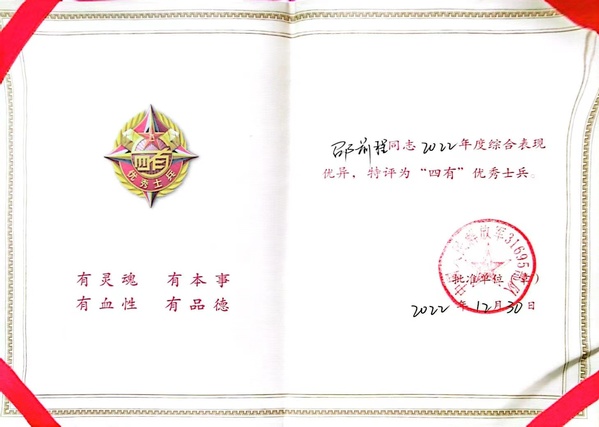 四有
优秀士兵
有灵魂 有本事
有血性 有品德
邵前程同志2022年度综合表现
优异，特评为“四有”优秀士兵。
中国人民解放军31695部队
（批准单位 章）
2022年12月30日